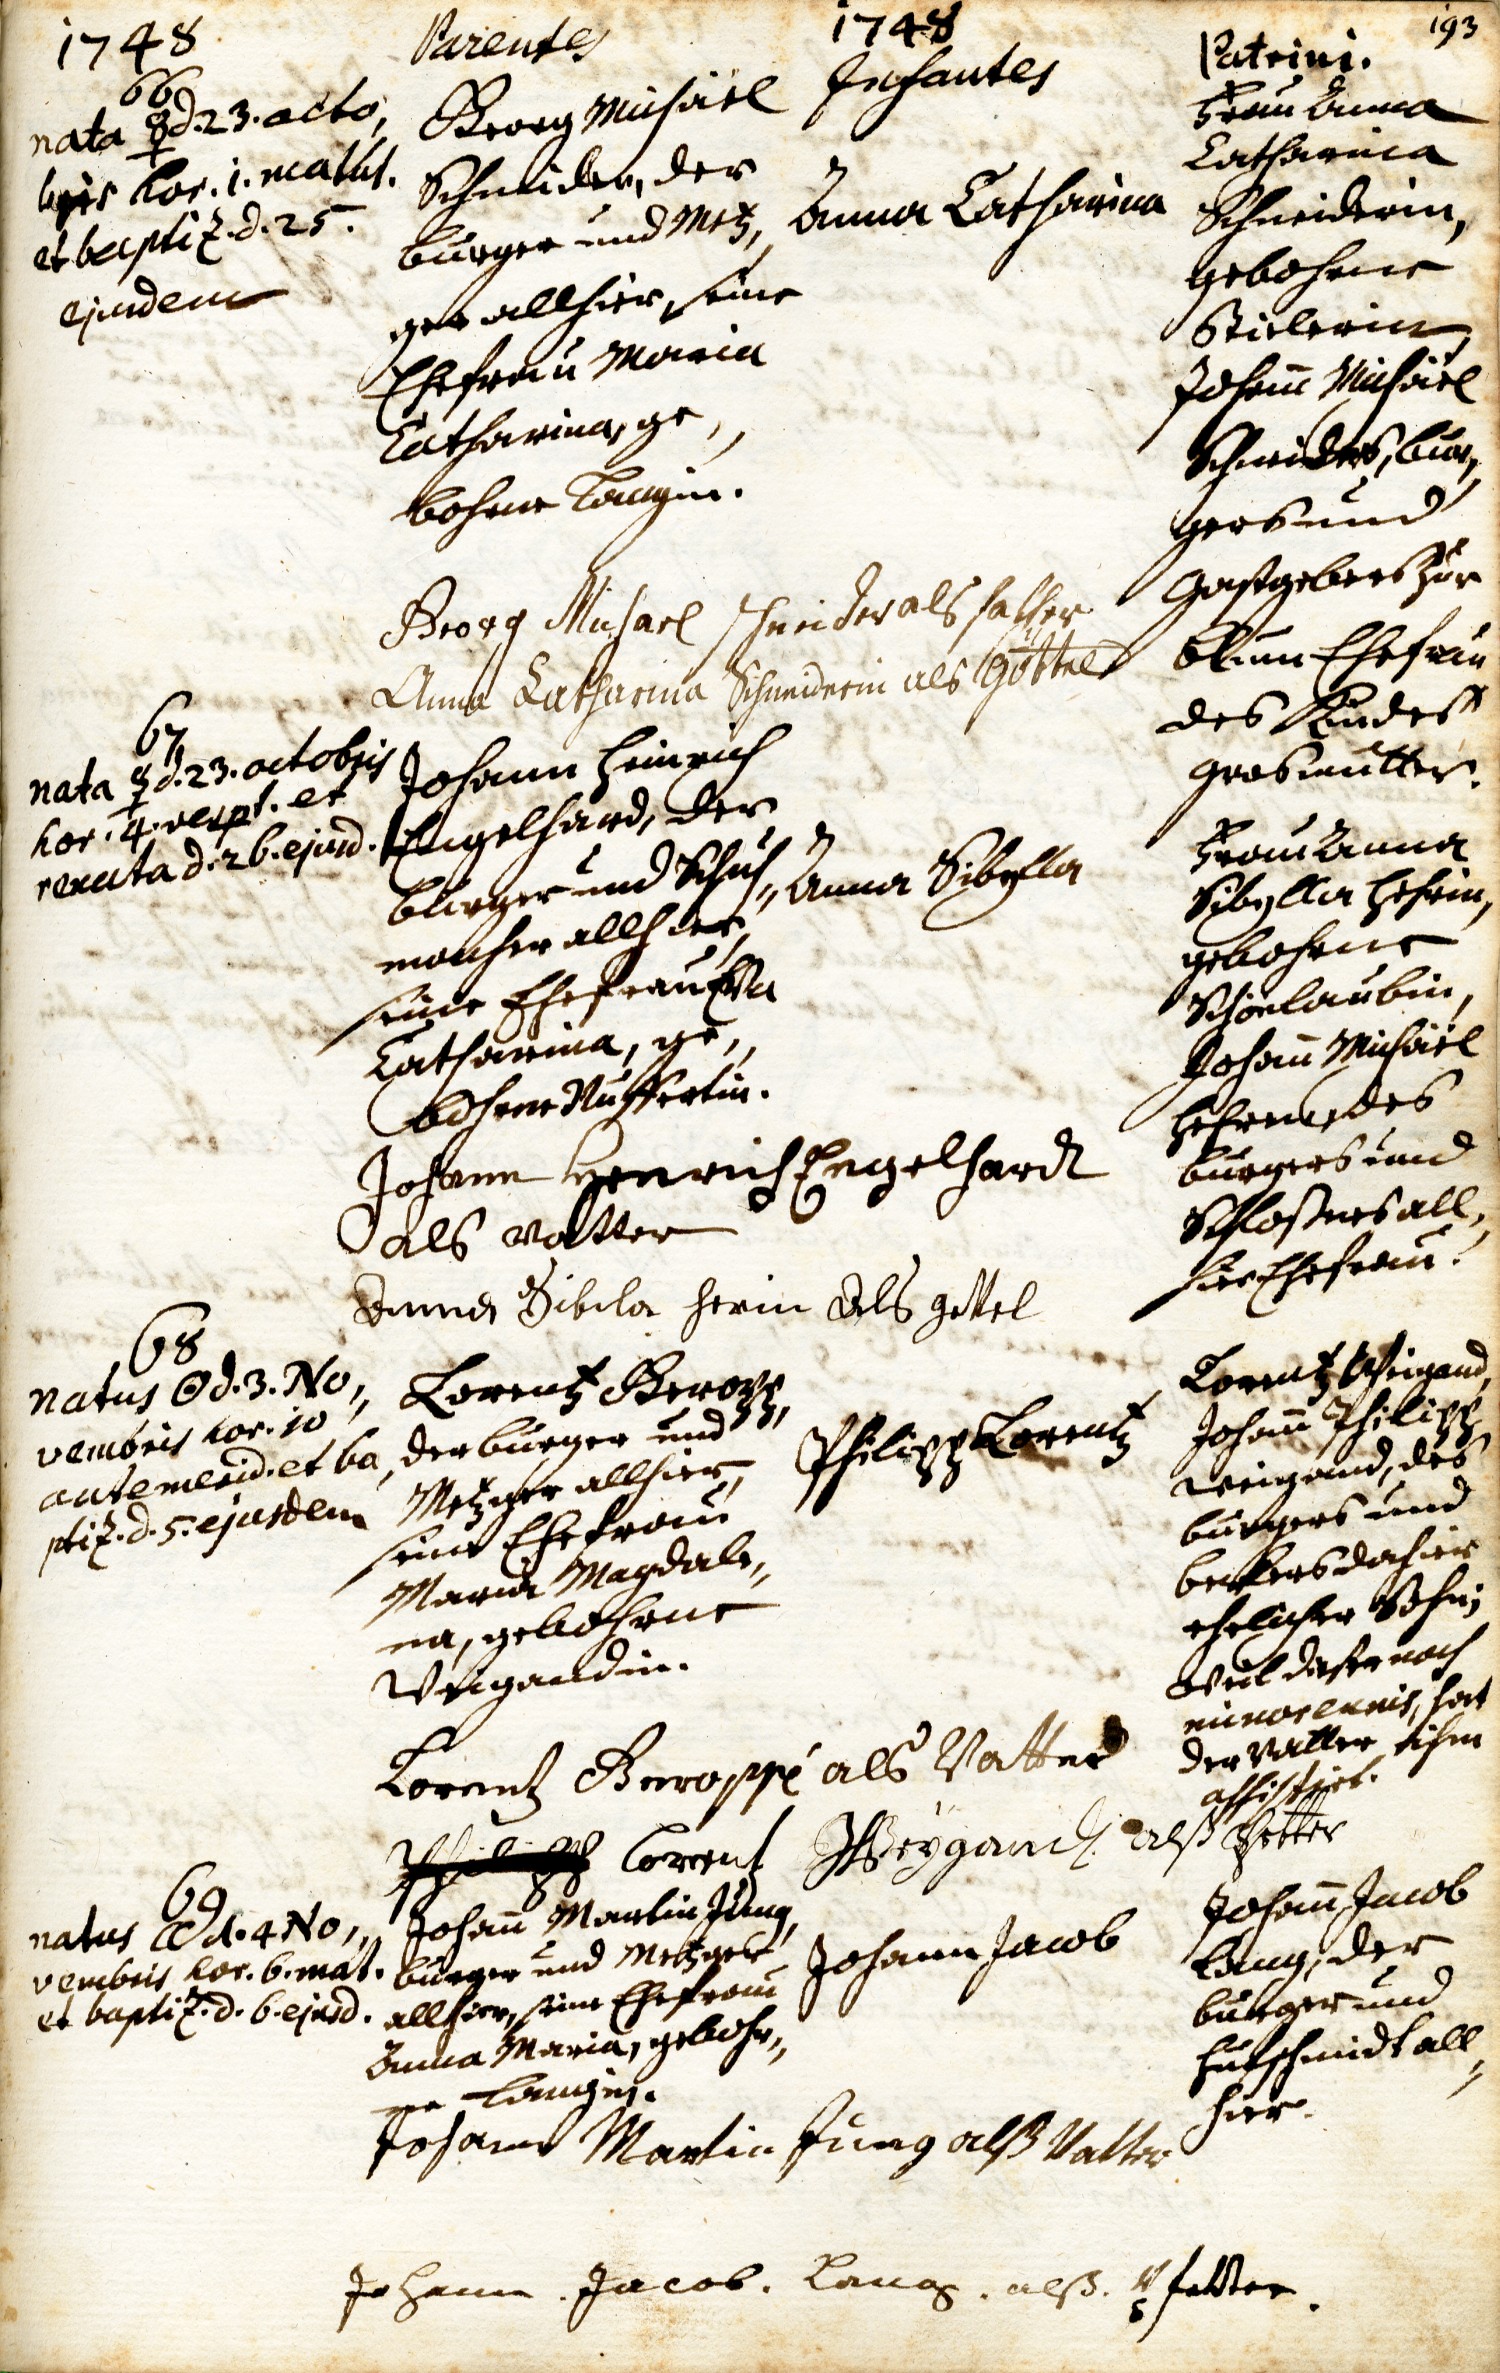 193
1748
Parentes
1748
Infantes
Patrini.
66
nata ☿ d. 23. octo,
bris hor. 1. matut.
et baptiz. d. 25.
ejusdem
Georg Michäel
Schneider, der
burger und Metz,,
ger allhier, seine
Ehefrau Maria
Catharina, ge,,
bohrne Langin.
Anna Catharina
Frau Anna
Catharina
Schneiderin,
gebohrne
Stielerin,
Johann Michäel
Schneiders, bur,,
gers und
Gastgebers zur
Ehefrau
des Kindes
Grosmutter.
Georg Michael schneider als father
Anna Catharina Schneiderin als Göttel
67
nata ☿ d. 23. octobris
hor. 4. vespt. et
renata d. 26. ejusd.
Johann Heinrich
Engelhard, der
burger und Schuh,,
macher allhier,
seine Ehefrau Eva
Catharina, ge,,
bohrne Nuffertin.
Anna Sibylla
Frau Anna
Sibylla Hehrin,
gebohrne
Scholaubin,
Johann Michäel
des
burgers und
Schlossers all,,
hier Ehefrau.
Johann Henrich Engelhardt
als vatter
Anna Sibila herin als gettel
68
natus ☉ d. 3. No,,
vembris hor. 10
antemerid. et ba,
ptiz. d. 5. ejusdem
Lorentz Geropp,
der burger und
Metzger allhier,
seine Ehefrau
Maria Magdale,,
na, gebohrne
Weigandin.
Philipp Lorentz
Lorentz Weigand,
Johann Philipp
Weigand, des
burgers und
beckers dahier
ehelicher Sohn;
Weil dieser noch
minorennis, hat
der Vatter ihm
assistiret.
Lorentz Geroppé als Vatter
Lorent Weygand alß Petter
69
natus ☾ d. 4 No,,
vembris hor. 6. mat.
et baptiz. d. 6. ejusd.
Johann Martin Jung,
burger und Metzger
allhier, seine Ehefrau
Anna Maria, gebohr,,
ne Langin.
Johann Jacob
Johann Jacob
Lang, der
burger und
Hufschmidt all,,
hier.
Johann Martin Jung alß Vatter
Johann. Jacob. Lang. alß. pfetter.